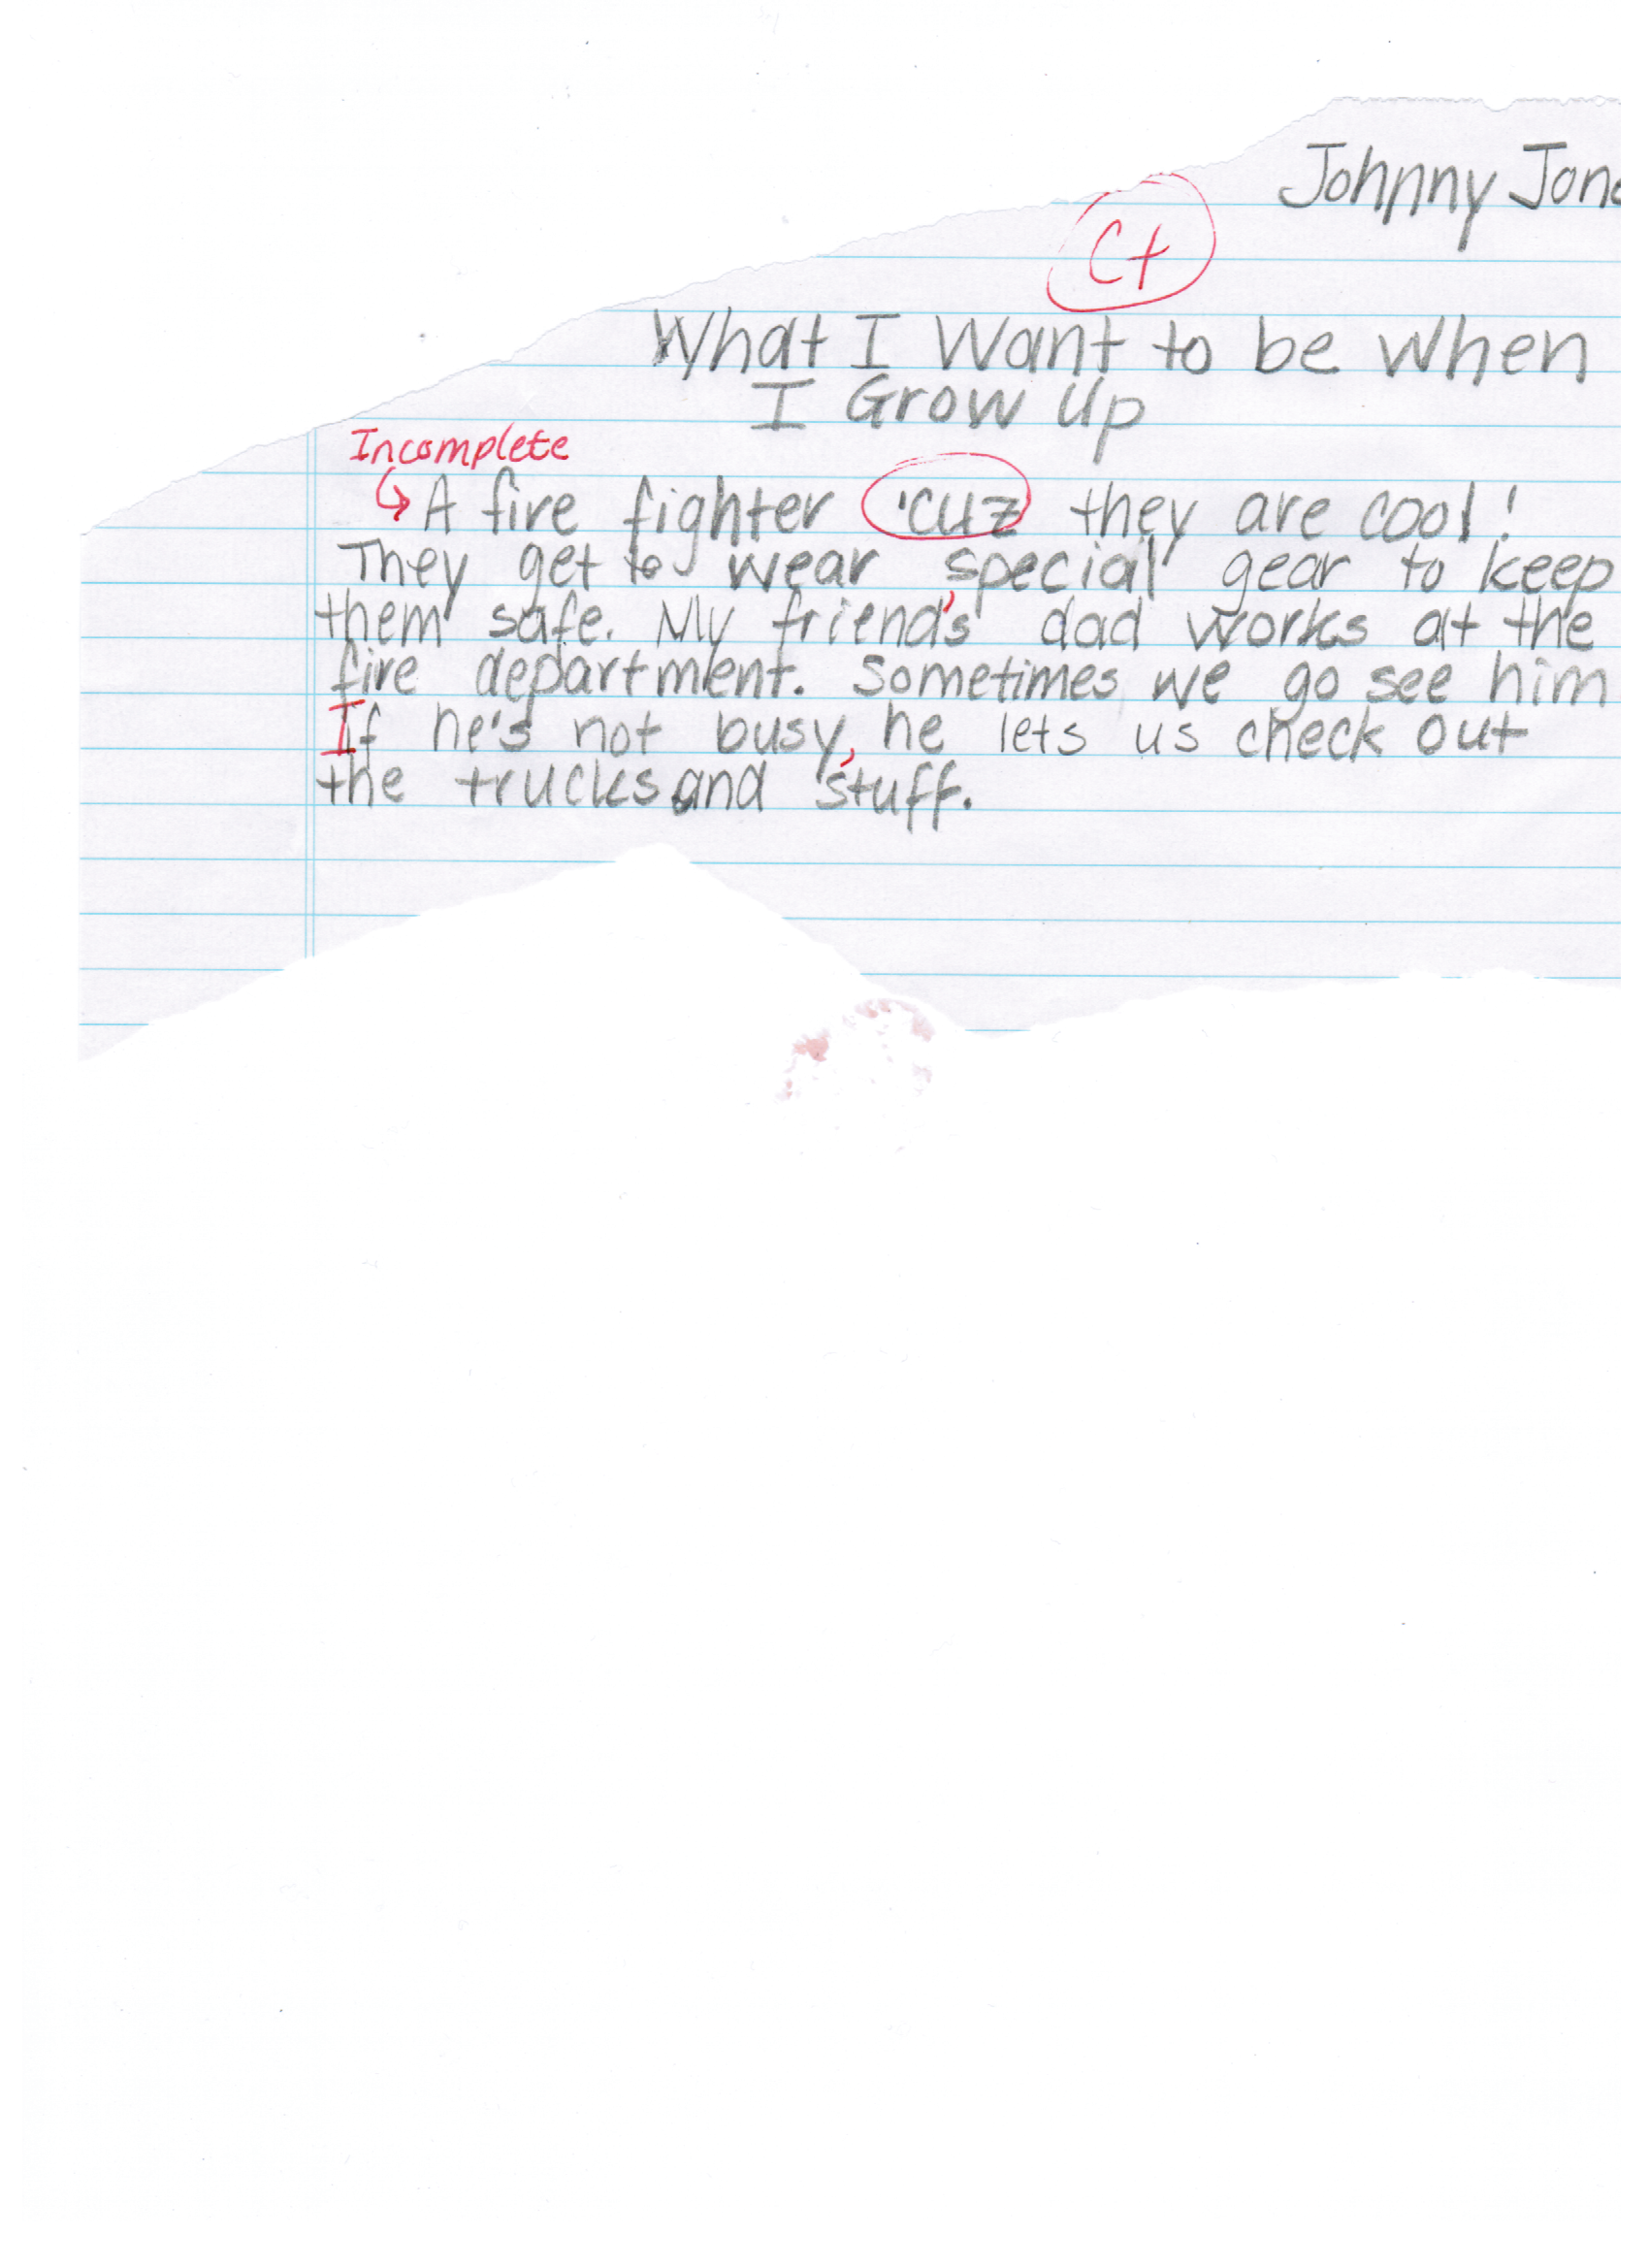 Johnny Jone
C+
What I Want to be when
I Grow Up
Incomplete
A fire fighter 'cuz they are cool!
They get to wear special gear to keep
them safe. My friend's dad works at the
fire department. Sometimes we go see him
If he's not busy, he lets us check out
the trucks and stuff.